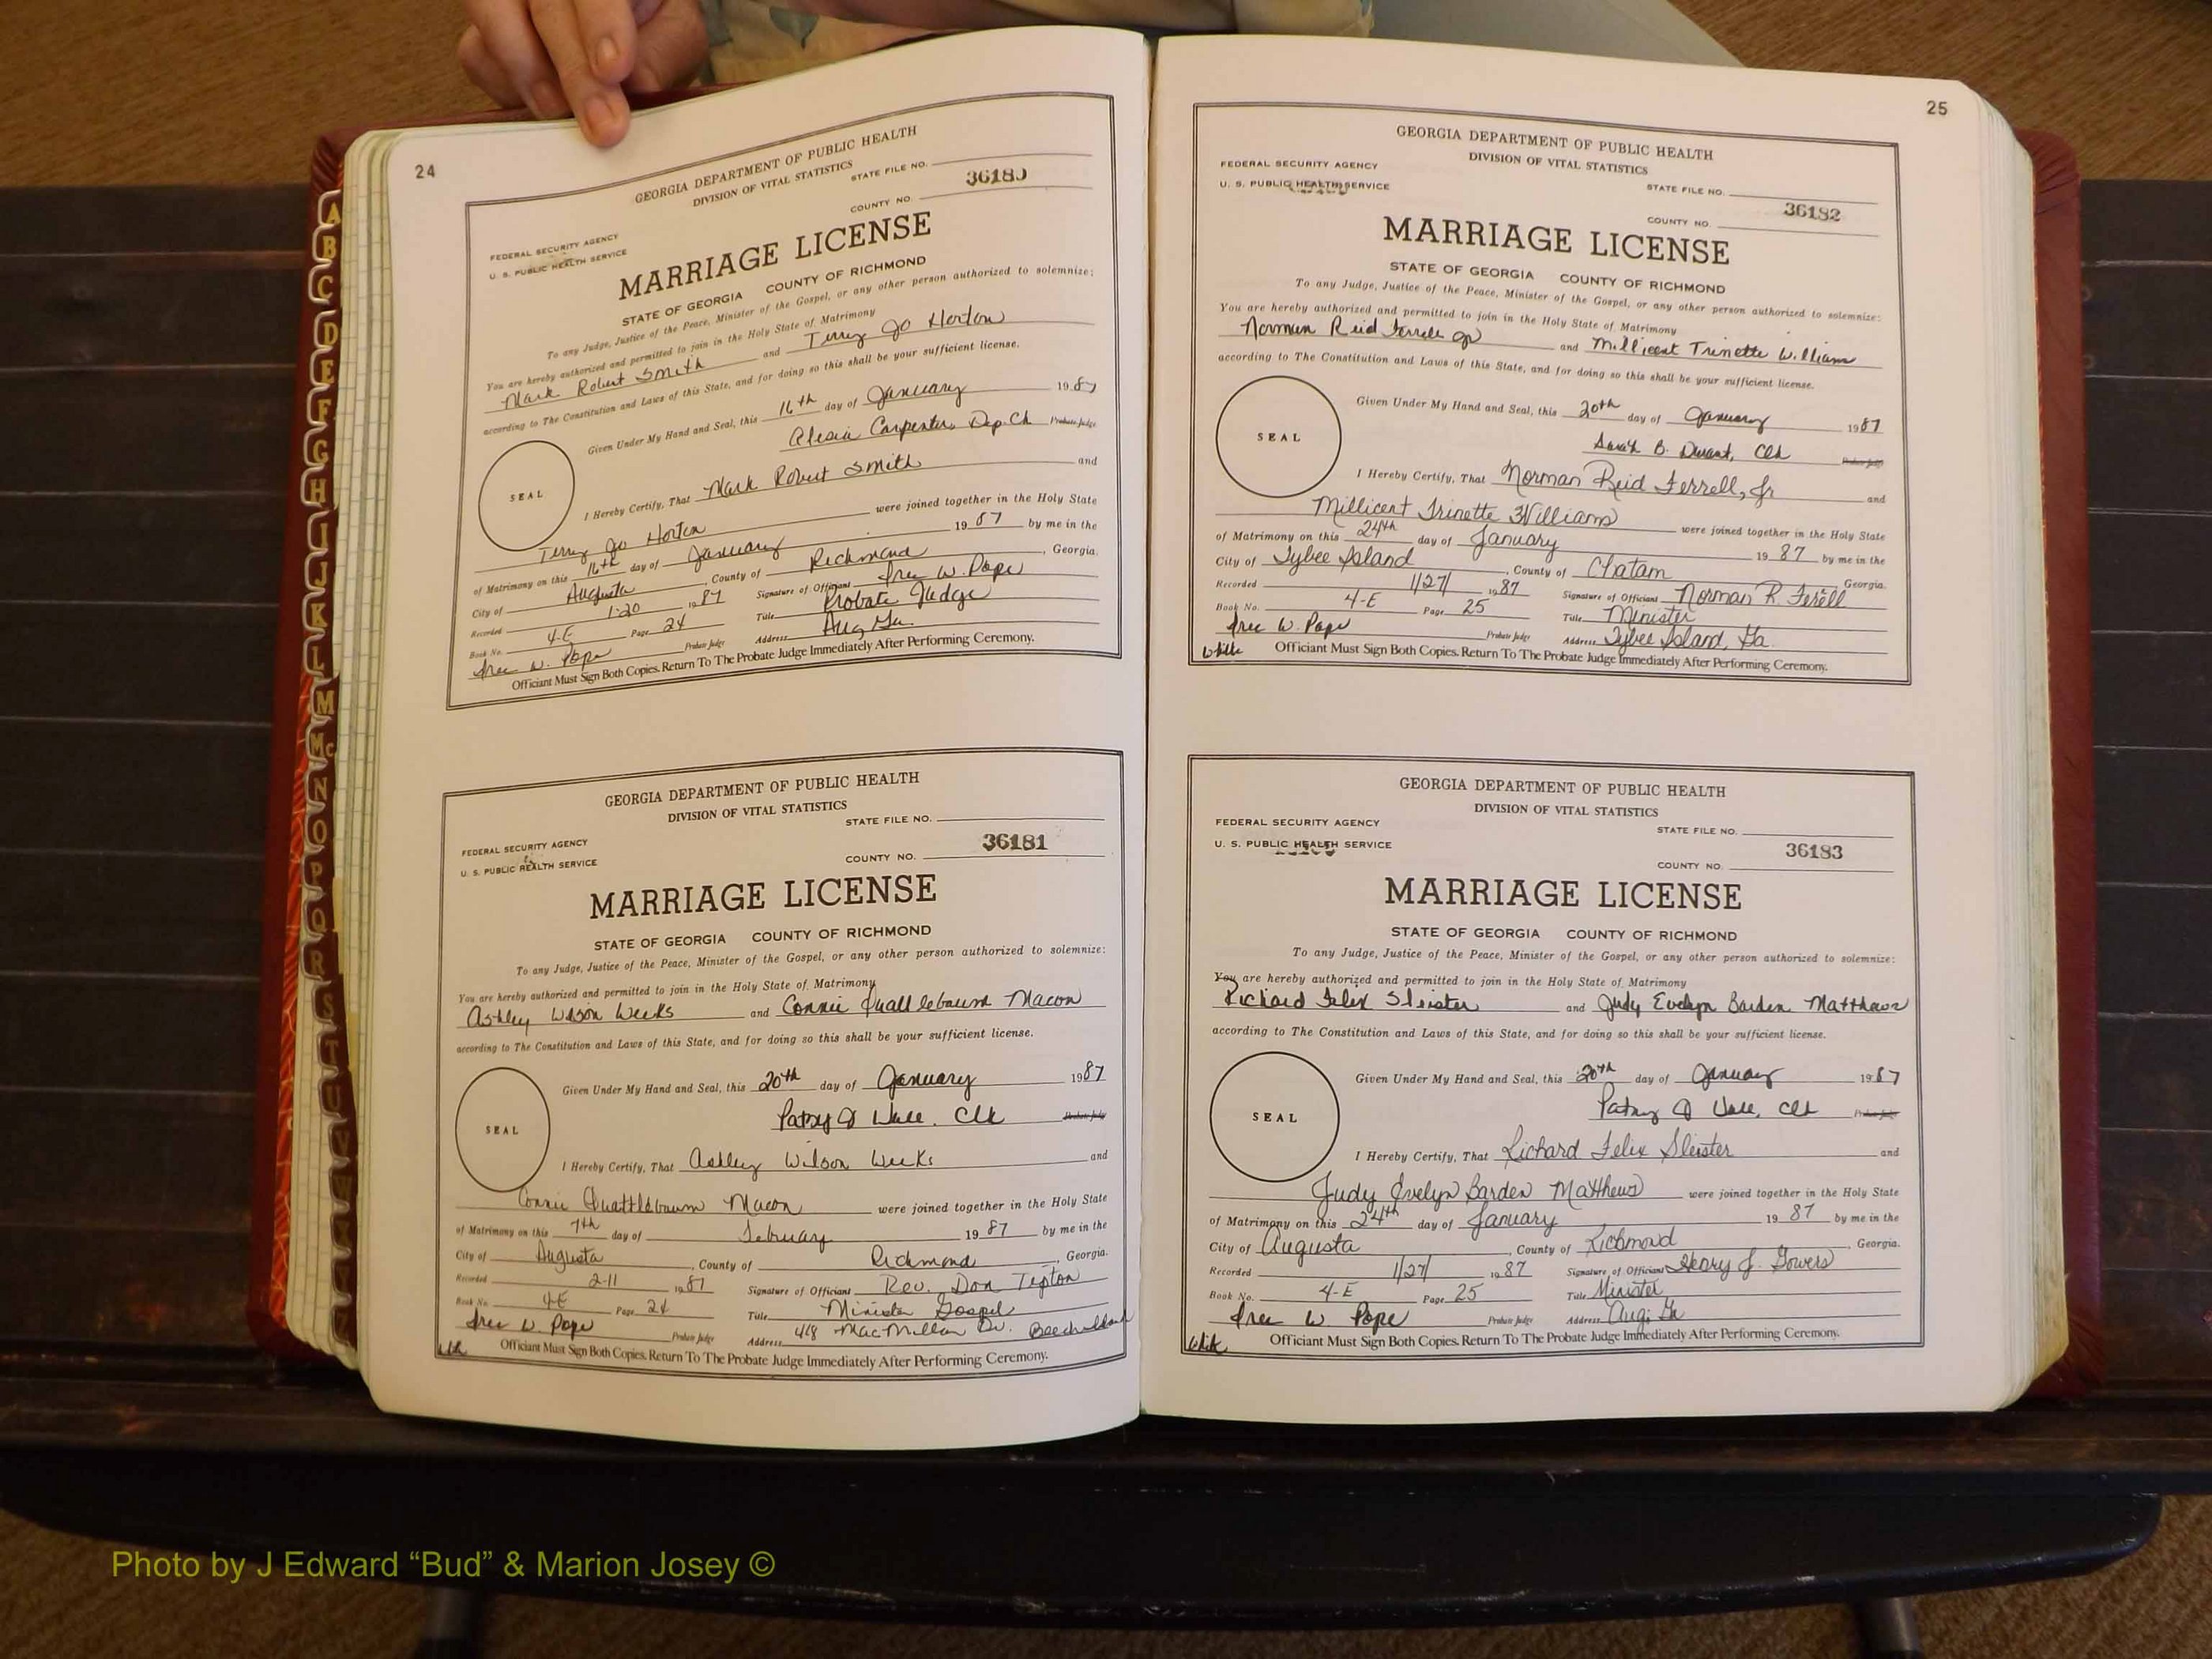 24
GEORGIA DEPARTMENT OF PUBLIC HEALTH
DIVISION OF VITAL STATISTICS
STATE FILE NO.
36180
COUNTY NO.
FEDERAL SECURITY AGENCY
U. S. PUBLIC HEALTH SERVICE
MARRIAGE LICENSE
STATE OF GEORGIA COUNTY OF RICHMOND
To any Judge, Justice of the Peace, Minister of the Gospel, or any other person authorized to solemnize:
You are hereby authorized and permitted to join in the Holy State of Matrimony
Mark Robert Smith and Terry Jo Horton
according to The Constitution and Laws of this State, and for doing so this shall be your sufficient license.
Given Under My Hand and Seal, this 16th day of January 1987
Alesia Carpenter Dep. Clk Probate Judge
SEAL
I Hereby Certify, That Mark Robert Smith and
Terry Jo Horton were joined together in the Holy State
of Matrimony on this 16th day of January 1987 by me in the
City of Augusta, County of Richmond, Georgia.
Recorded 1-20 1987 Signature of Officiant W. Pope
Book No. 4-E Page 24 Title Probate Judge
W. Pope Probate Judge Address Aug Ga.
Officiant Must Sign Both Copies. Return To The Probate Judge Immediately After Performing Ceremony.
GEORGIA DEPARTMENT OF PUBLIC HEALTH
DIVISION OF VITAL STATISTICS
STATE FILE NO.
36181
FEDERAL SECURITY AGENCY
COUNTY NO.
U. S. PUBLIC HEALTH SERVICE
MARRIAGE LICENSE
STATE OF GEORGIA COUNTY OF RICHMOND
To any Judge, Justice of the Peace, Minister of the Gospel, or any other person authorized to solemnize:
You are hereby authorized and permitted to join in the Holy State of Matrimony
Ashley Wilson Weeks and Connie Quattlebaum Macon
according to The Constitution and Laws of this State, and for doing so this shall be your sufficient license.
Given Under My Hand and Seal, this 20th day of January 1987
Patsy J Wall, Clk Probate Judge
SEAL
I Hereby Certify, That Ashley Wilson Weeks and
Connie Quattlebaum Macon were joined together in the Holy State
of Matrimony on this 7th day of February 1987 by me in the
City of Augusta, County of Richmond, Georgia.
Recorded 2-11 1987 Signature of Officiant Rev. Don Tipton
Book No. 4-E Page 24 Title Minister Gospel
W. Pope Probate Judge Address 418 MacMillan Dr.
Officiant Must Sign Both Copies. Return To The Probate Judge Immediately After Performing Ceremony.
25
GEORGIA DEPARTMENT OF PUBLIC HEALTH
DIVISION OF VITAL STATISTICS
FEDERAL SECURITY AGENCY
U. S. PUBLIC HEALTH SERVICE
STATE FILE NO.
36182
COUNTY NO.
MARRIAGE LICENSE
STATE OF GEORGIA COUNTY OF RICHMOND
To any Judge, Justice of the Peace, Minister of the Gospel, or any other person authorized to solemnize:
You are hereby authorized and permitted to join in the Holy State of Matrimony
Norman Reid Ferrell Jr and Millicent Trinette Williams
according to The Constitution and Laws of this State, and for doing so this shall be your sufficient license.
Given Under My Hand and Seal, this 20th day of January 1987
Sarah B. Clk Probate Judge
SEAL
I Hereby Certify, That Norman Reid Ferrell, Jr and
Millicent Trinette Williams were joined together in the Holy State
of Matrimony on this 24th day of January 1987 by me in the
City of Tybee Island, County of Chatam, Georgia.
Recorded 1/27/ 1987 Signature of Officiant Norman R. Ferrell
Book No. 4-E Page 25 Title Minister
W. Pope Probate Judge Address Tybee Island, Ga.
White Officiant Must Sign Both Copies. Return To The Probate Judge Immediately After Performing Ceremony.
GEORGIA DEPARTMENT OF PUBLIC HEALTH
DIVISION OF VITAL STATISTICS
FEDERAL SECURITY AGENCY
STATE FILE NO.
U. S. PUBLIC HEALTH SERVICE
36183
COUNTY NO.
MARRIAGE LICENSE
STATE OF GEORGIA COUNTY OF RICHMOND
To any Judge, Justice of the Peace, Minister of the Gospel, or any other person authorized to solemnize:
You are hereby authorized and permitted to join in the Holy State of Matrimony
Richard Felix Sleister and Judy Evelyn Barden Matthews
according to The Constitution and Laws of this State, and for doing so this shall be your sufficient license.
Given Under My Hand and Seal, this 20th day of January 1987
Patsy J Wall, Clk Probate Judge
SEAL
I Hereby Certify, That Richard Felix Sleister and
Judy Evelyn Barden Matthews were joined together in the Holy State
of Matrimony on this 24th day of January 1987 by me in the
City of Augusta, County of Richmond, Georgia.
Recorded 1/27/ 1987 Signature of Officiant Henry J. Gowers
Book No. 4-E Page 25 Title Minister
W Pope Probate Judge Address Aug; Ga
White Officiant Must Sign Both Copies. Return To The Probate Judge Immediately After Performing Ceremony.
A
B
C
D
E
F
G
H
I
J
K
L
M
Mc
N
O
P
Q
R
S
T
U
V
Photo by J Edward “Bud” & Marion Josey ©